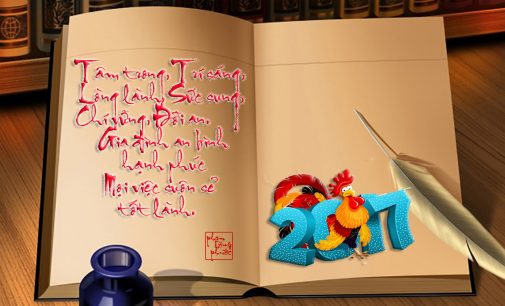 Tâm trong, Trí sáng,
Lòng lành Sức sung,
Chí vững, Đời an.
Gia đình an bình
hạnh phúc
Mọi việc suôn sẻ
tốt lành.
2017